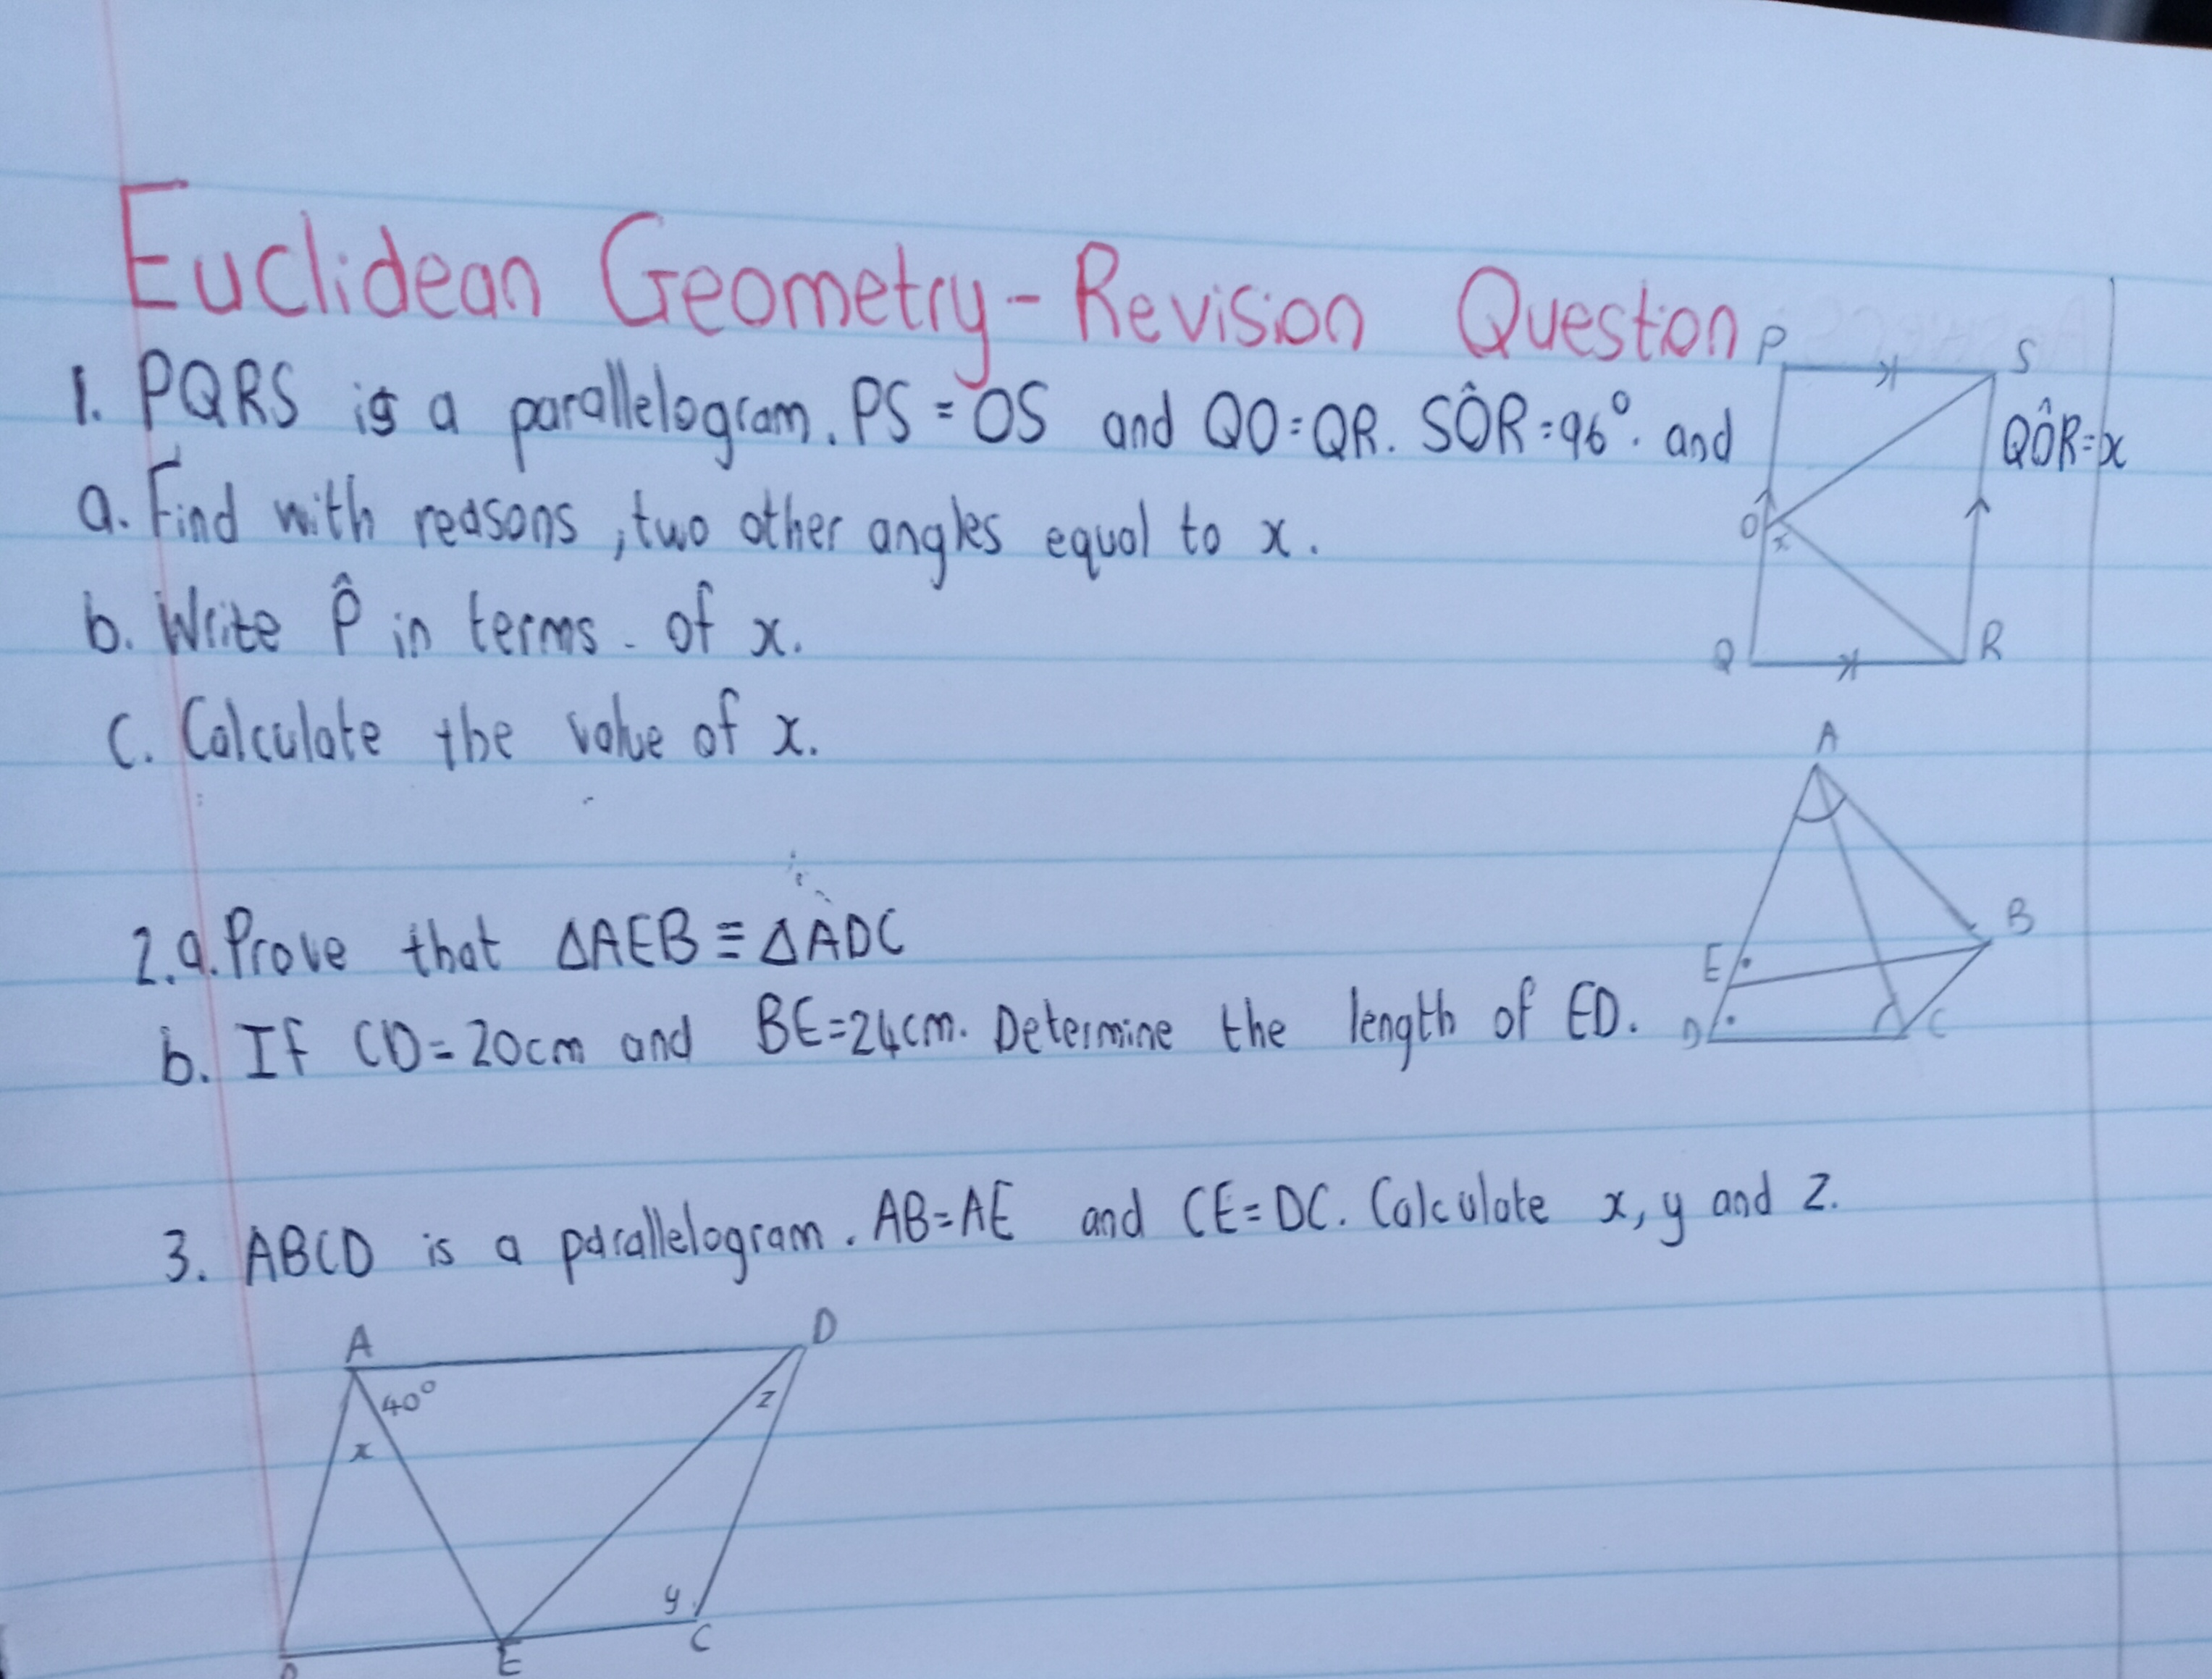 Euclidean Geometry - Revision Question
1. PQRS is a parallelogram. PS = OS and QO = QR. SÔR = 96°. and QÔR = x
a. Find with reasons, two other angles equal to x.
b. Write P̂ in terms of x.
c. Calculate the value of x.
P
S
O
x
Q
R
2.a. Prove that ΔAEB ≡ ΔADC
b. If CD = 20cm and BE = 24cm. Determine the length of ED.
A
B
E
D
C
3. ABCD is a parallelogram. AB = AE and CE = DC. Calculate x, y and z.
A
D
40°
z
x
y
C
E